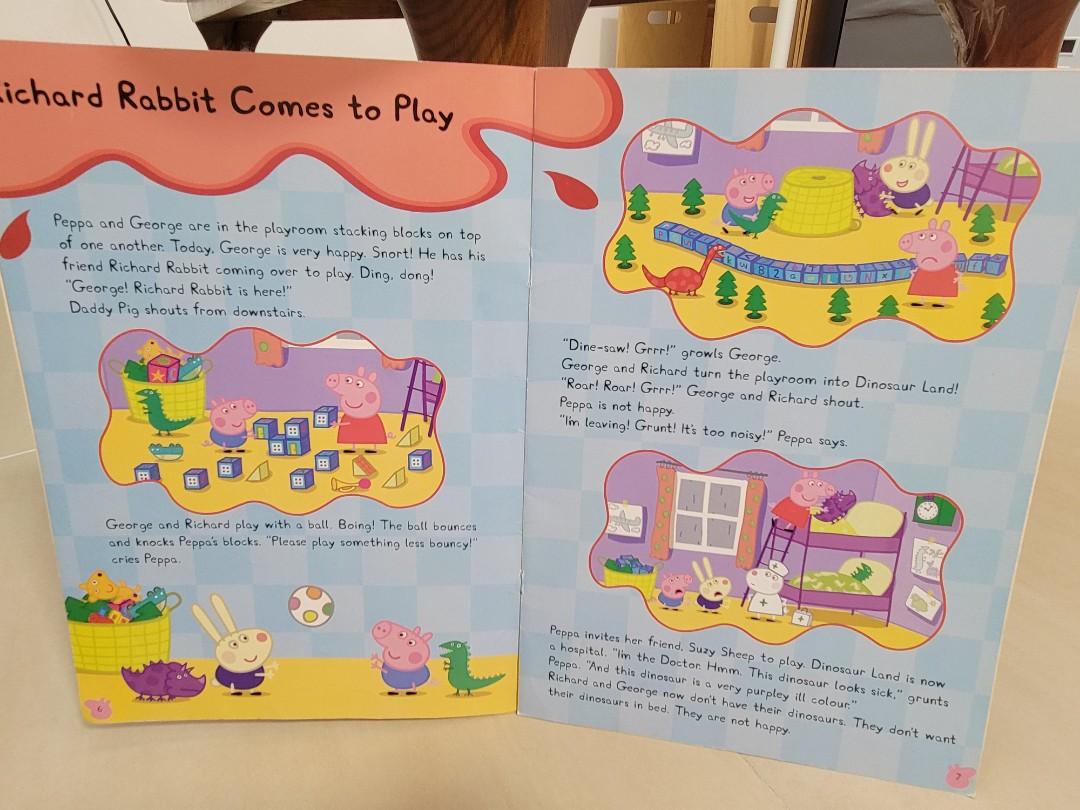 Richard Rabbit Comes to Play
Peppa and George are in the playroom stacking blocks on top
of one another. Today, George is very happy. Snort! He has his
friend Richard Rabbit coming over to play. Ding, dong!
"George! Richard Rabbit is here!"
Daddy Pig shouts from downstairs.
George and Richard play with a ball. Boing! The ball bounces
and knocks Peppa's blocks. "Please play something less bouncy!"
cries Peppa.
6
"Dine-saw! Grrr!" growls George.
George and Richard turn the playroom into Dinosaur Land!
"Roar! Roar! Grrr!" George and Richard shout.
Peppa is not happy.
"I'm leaving! Grunt! It's too noisy!" Peppa says.
Peppa invites her friend, Suzy Sheep to play. Dinosaur Land is now
a hospital. "I'm the Doctor. Hmm. This dinosaur looks sick," grunts
Peppa. "And this dinosaur is a very purpley ill colour."
Richard and George now don't have their dinosaurs. They don't want
their dinosaurs in bed. They are not happy.
7